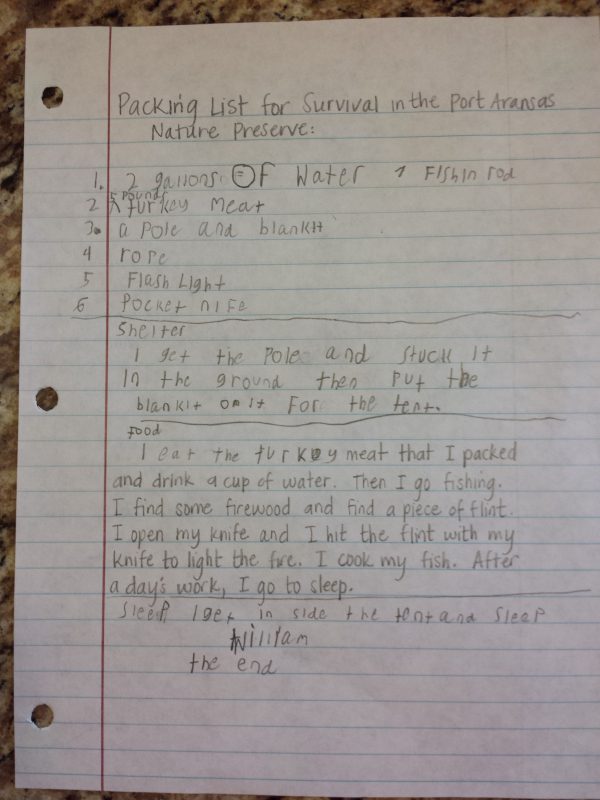 Packing List for Survival in the Port Aransas
Nature Preserve:
1. 2 gallons OF Water 1 Fishin rod
5 Pounds
2 ^ turkey meat
3. a Pole and blankit
4 rope
5 Flash Light
6 Pocket nife
Shelter
I get the Pole and stuck it
In the ground then Put the
blankit on it For the tent.
Food
I eat the turkey meat that I packed
and drink a cup of water. Then I go fishing.
I find some firewood and find a piece of flint.
I open my knife and I hit the flint with my
knife to light the fire. I cook my fish. After
a day's work, I go to sleep.
Sleep I get in side the tent and Sleep
William
the end